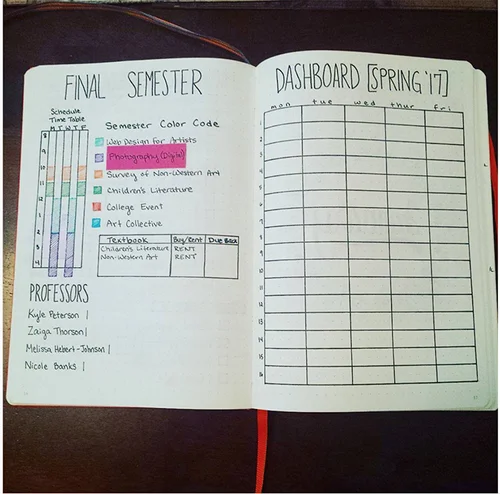 FINAL SEMESTER
Schedule
Time Table
M T W T F
8
9
10
11
12
1
2
3
4
Semester Color Code
Web Design for Artists
Photography (Digital)
Survey of Non-Western Art
Children's Literature
College Event
Art Collective
Textbook Buy/Rent Due Back
Children's Literature RENT
Non-Western Art RENT
PROFESSORS
Kyle Peterson |
Zaiga Thorson |
Melissa Hebert-Johnson |
Nicole Banks |
DASHBOARD [SPRING '17]
mon tue wed thur fri
1
2
3
4
5
6
7
8
9
10
11
12
13
14
15
16